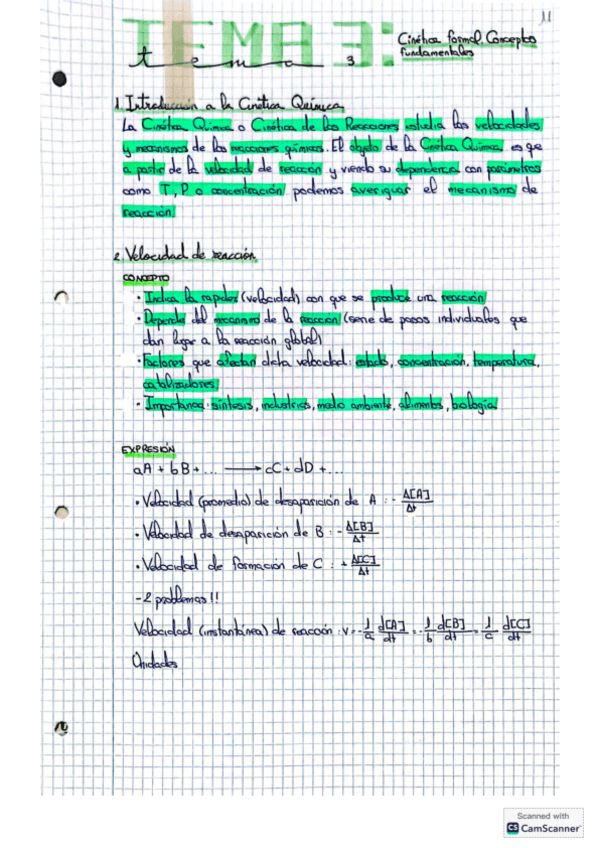 11
TEMA 3:
tema 3
Cinética formal. Conceptos
fundamentales
1. Introducción a la Cinética Química
La Cinética Química o Cinética de las Reacciones estudia las velocidades
y mecanismos de las reacciones químicas. El objeto de la Cinética Química es que
a partir de la velocidad de reacción y viendo su dependencia con parámetros
como T, P o concentración podemos averiguar el mecanismo de
reacción
2. Velocidad de reacción
CONCEPTO
· Indica la rapidez (velocidad) con que se produce una reacción
· Depende del mecanismo de la reacción (serie de pasos individuales que
dan lugar a la reacción global)
· Factores que afectan dicha velocidad: estado, concentración, temperatura,
catalizadores
· Importancia: síntesis, industrias, medio ambiente, alimentos, biología
EXPRESIÓN
aA + bB + ... ⟶ cC + dD + ...
· Velocidad (promedio) de desaparición de A : - Δ[A]/Δt
· Velocidad de desaparición de B : - Δ[B]/Δt
· Velocidad de formación de C : + Δ[C]/Δt
- 2 problemas!!
Velocidad (instantánea) de reacción : v = - 1/a d[A]/dt = - 1/b d[B]/dt = 1/c d[C]/dt
Unidades
Scanned with
CS CamScanner